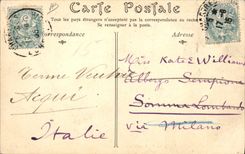 Carte Postale
Tous les pays étrangers n'acceptent pas la correspondance au recto
Se renseigner à la poste
Miss Kate E Williams
Albergo Sempione
Somma Lombardo
via Milano
Terme
Acqui
Italie